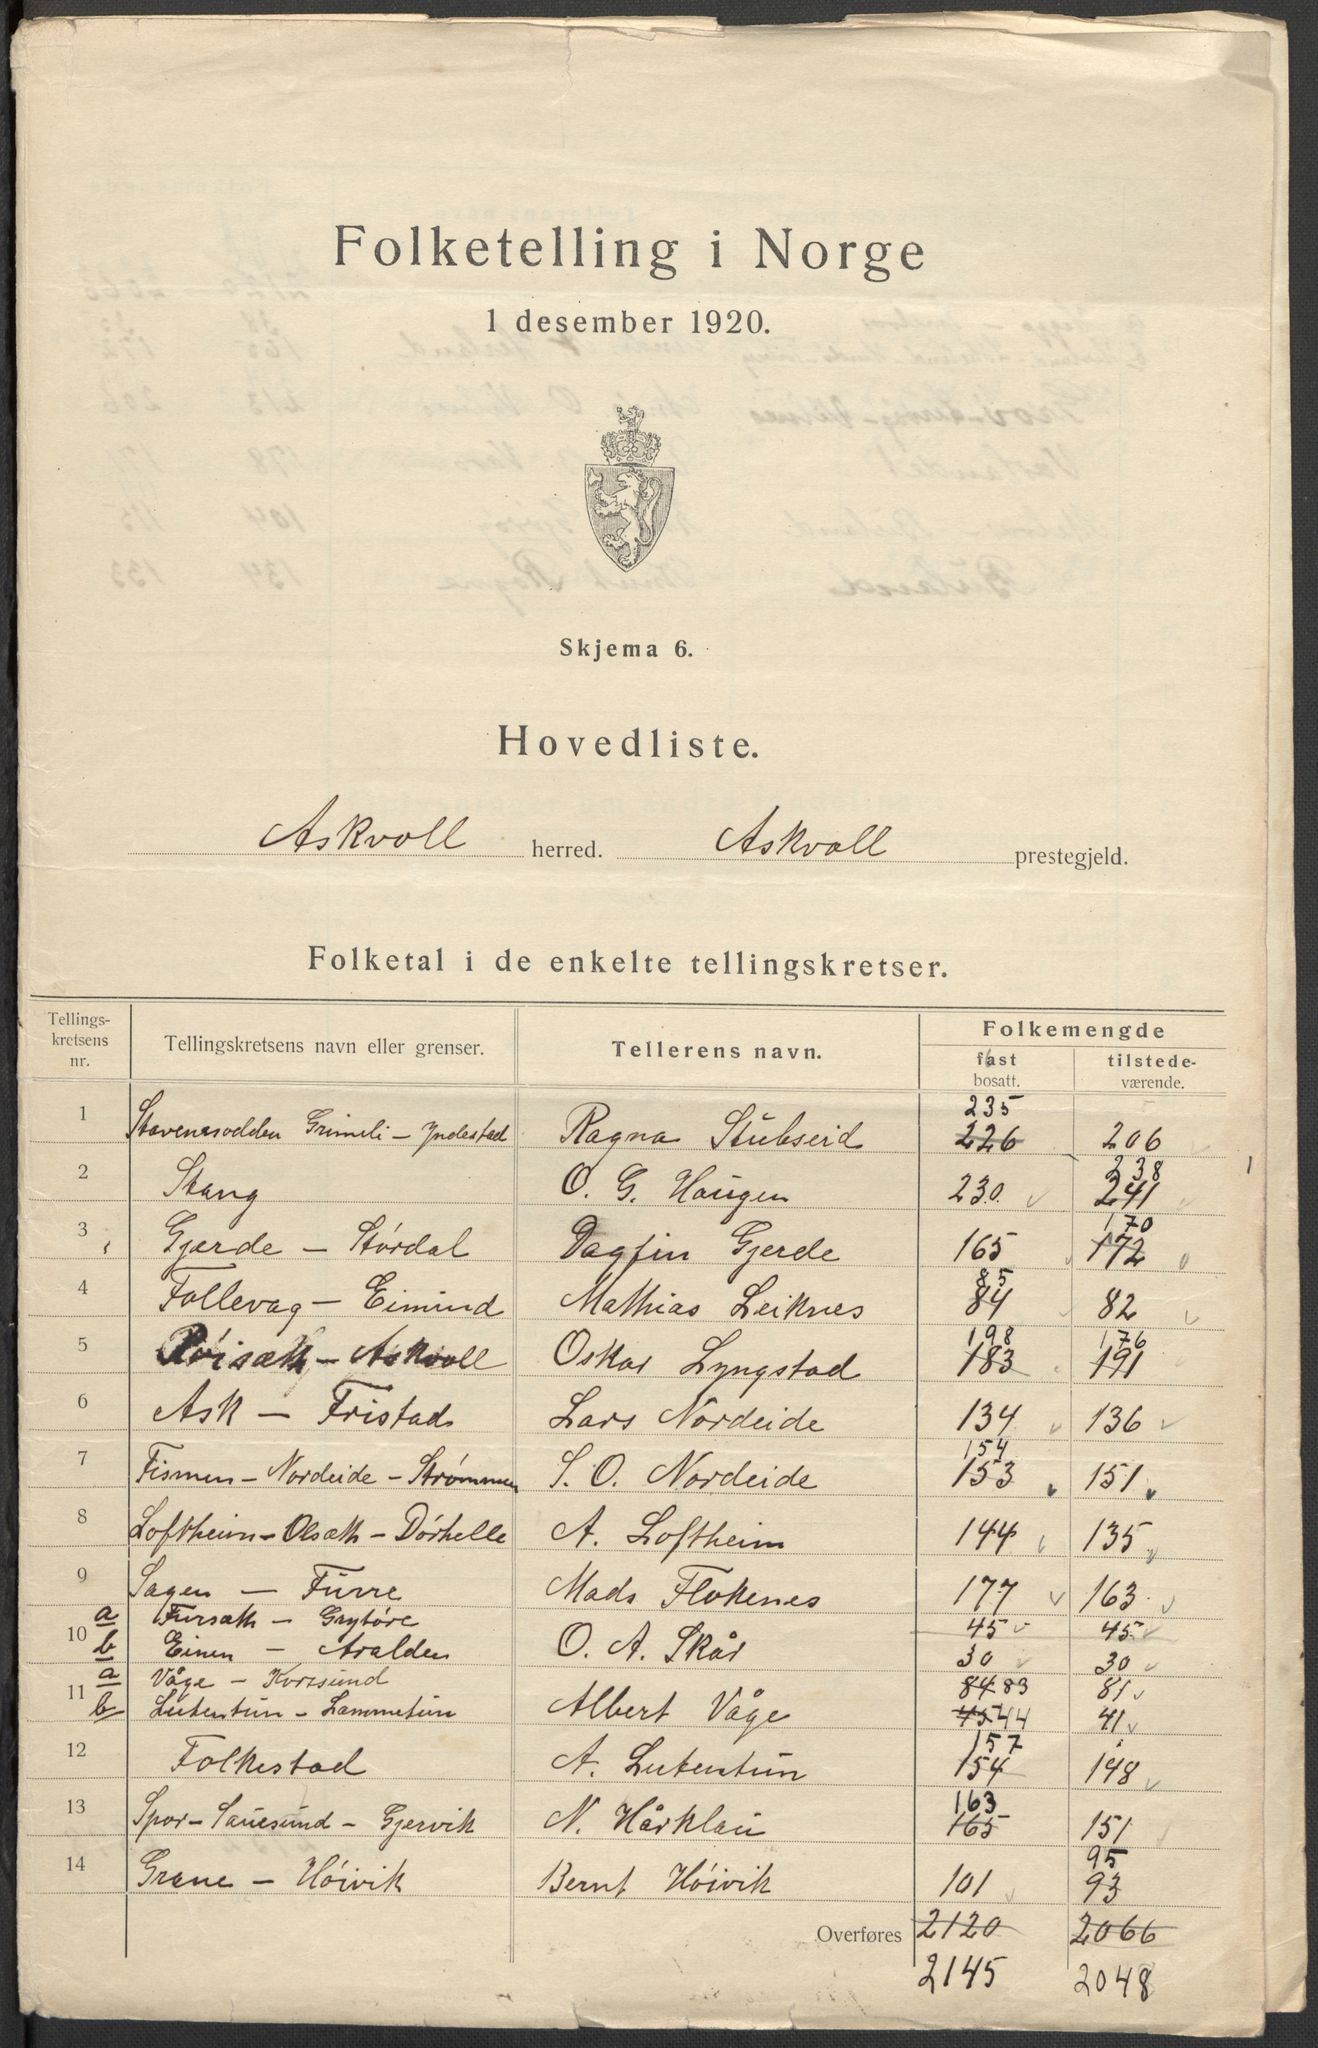 Folketelling i Norge
1 desember 1920.
Skjema 6.
Hovedliste.
Askvoll herred. Askvoll prestegjeld.
Folketal i de enkelte tellingskretser.
Tellings-kretsens nr. Tellingskretsens navn eller grenser. Tellerens navn. Folkemengde
fast bosatt. tilstede-værende.
235
1 Stavenesodden Grimeli - Yndestad Ragna Stubseid 226 206
238
2 Stang O. G. Haugen 230 241
170
3 Gjærde - Stórdal Dagfin Gjerde 165 172
85
4 Follevag - Eimind Mathias Leiknes 84 82
198 176
5 Róisæth - Askvoll Oskar Lyngstad 183 191
6 Ask - Fristad Lars Nordeide 134 136
154
7 Fismen - Nordeide - Strømmen S. O. Nordeide 153 151
8 Loftheim - Olsæth - Dórhelle A. Loftheim 144 135
9 Sagen - Furre Mads Flokenes 177 163
10 a Fursæth - Grytóre 45 45
b Einen - Aralden O. A. Skår 30 30
11 a Våge - Korssund 84 83 81
b Lutentun - Lammetun Albert Våge 45 44 41
157
12 Folkestad A. Lutentun 154 148
163
13 Spor - Sauesund - Gjervik N. Hårklau 165 151
95
14 Grane - Hóivik Bernt Hóivik 101 93
Overføres 2120 2066
2145 2048